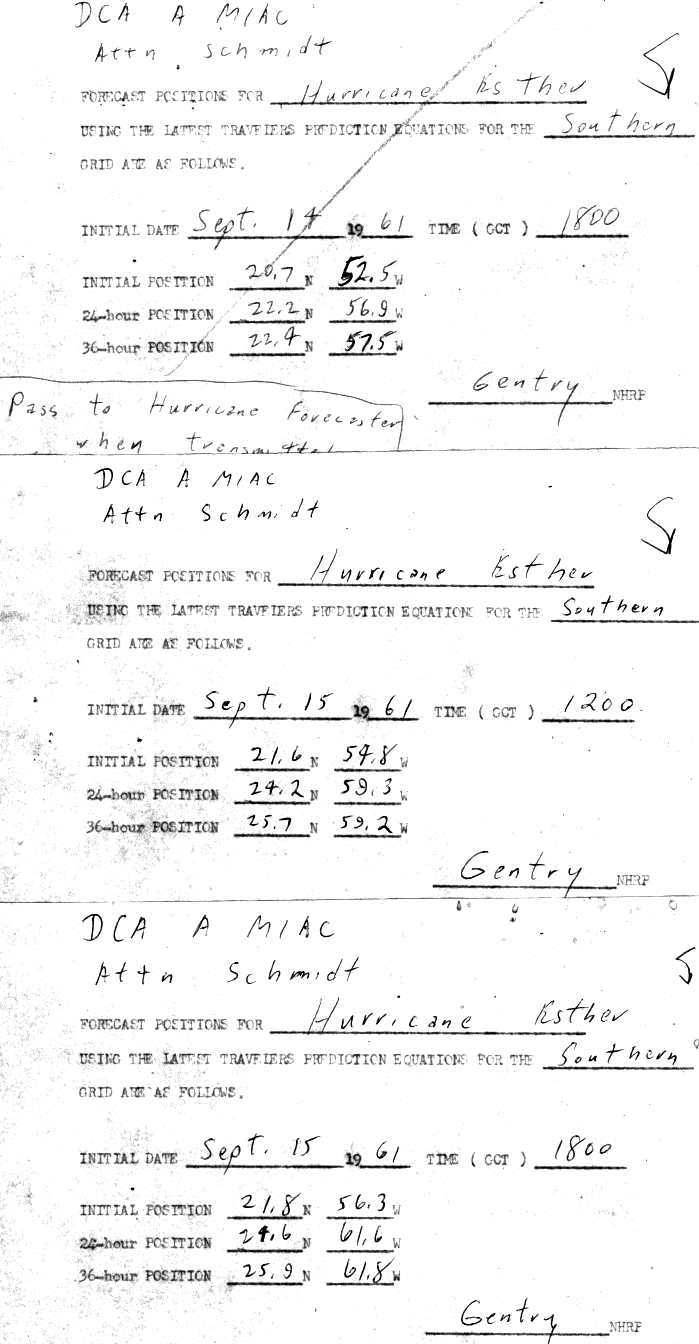 DCA A MIAC
Attn Schmidt
FORECAST POSITIONS FOR Hurricane Esther
USING THE LATEST TRAVELERS PREDICTION EQUATIONS FOR THE Southern
GRID ARE AS FOLLOWS.
INITIAL DATE Sept. 14 1961 TIME ( GCT ) 1800
INITIAL POSITION 20.7 N 52.5 W
24-hour POSITION 22.2 N 56.9 W
36-hour POSITION 22.4 N 57.5 W
Gentry NHRP
Pass to Hurricane Forecaster
when transmitted
DCA A MIAC
Attn Schmidt
FORECAST POSITIONS FOR Hurricane Esther
USING THE LATEST TRAVELERS PREDICTION EQUATIONS FOR THE Southern
GRID ARE AS FOLLOWS.
INITIAL DATE Sept. 15 1961 TIME ( GCT ) 1200
INITIAL POSITION 21.6 N 54.8 W
24-hour POSITION 24.2 N 59.3 W
36-hour POSITION 25.7 N 59.2 W
Gentry NHRP
DCA A MIAC
Attn Schmidt
FORECAST POSITIONS FOR Hurricane Esther
USING THE LATEST TRAVELERS PREDICTION EQUATIONS FOR THE Southern
GRID ARE AS FOLLOWS.
INITIAL DATE Sept. 15 1961 TIME ( GCT ) 1800
INITIAL POSITION 21.8 N 56.3 W
24-hour POSITION 24.6 N 61.6 W
36-hour POSITION 25.9 N 61.8 W
Gentry NHRP